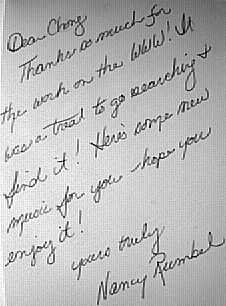 Dear Chong
Thanks so much for
the work on the WWW! It
was a treat to go searching &
find it! Here's some new
music for you - hope you
enjoy it!
yours truly
Nancy Rumbel